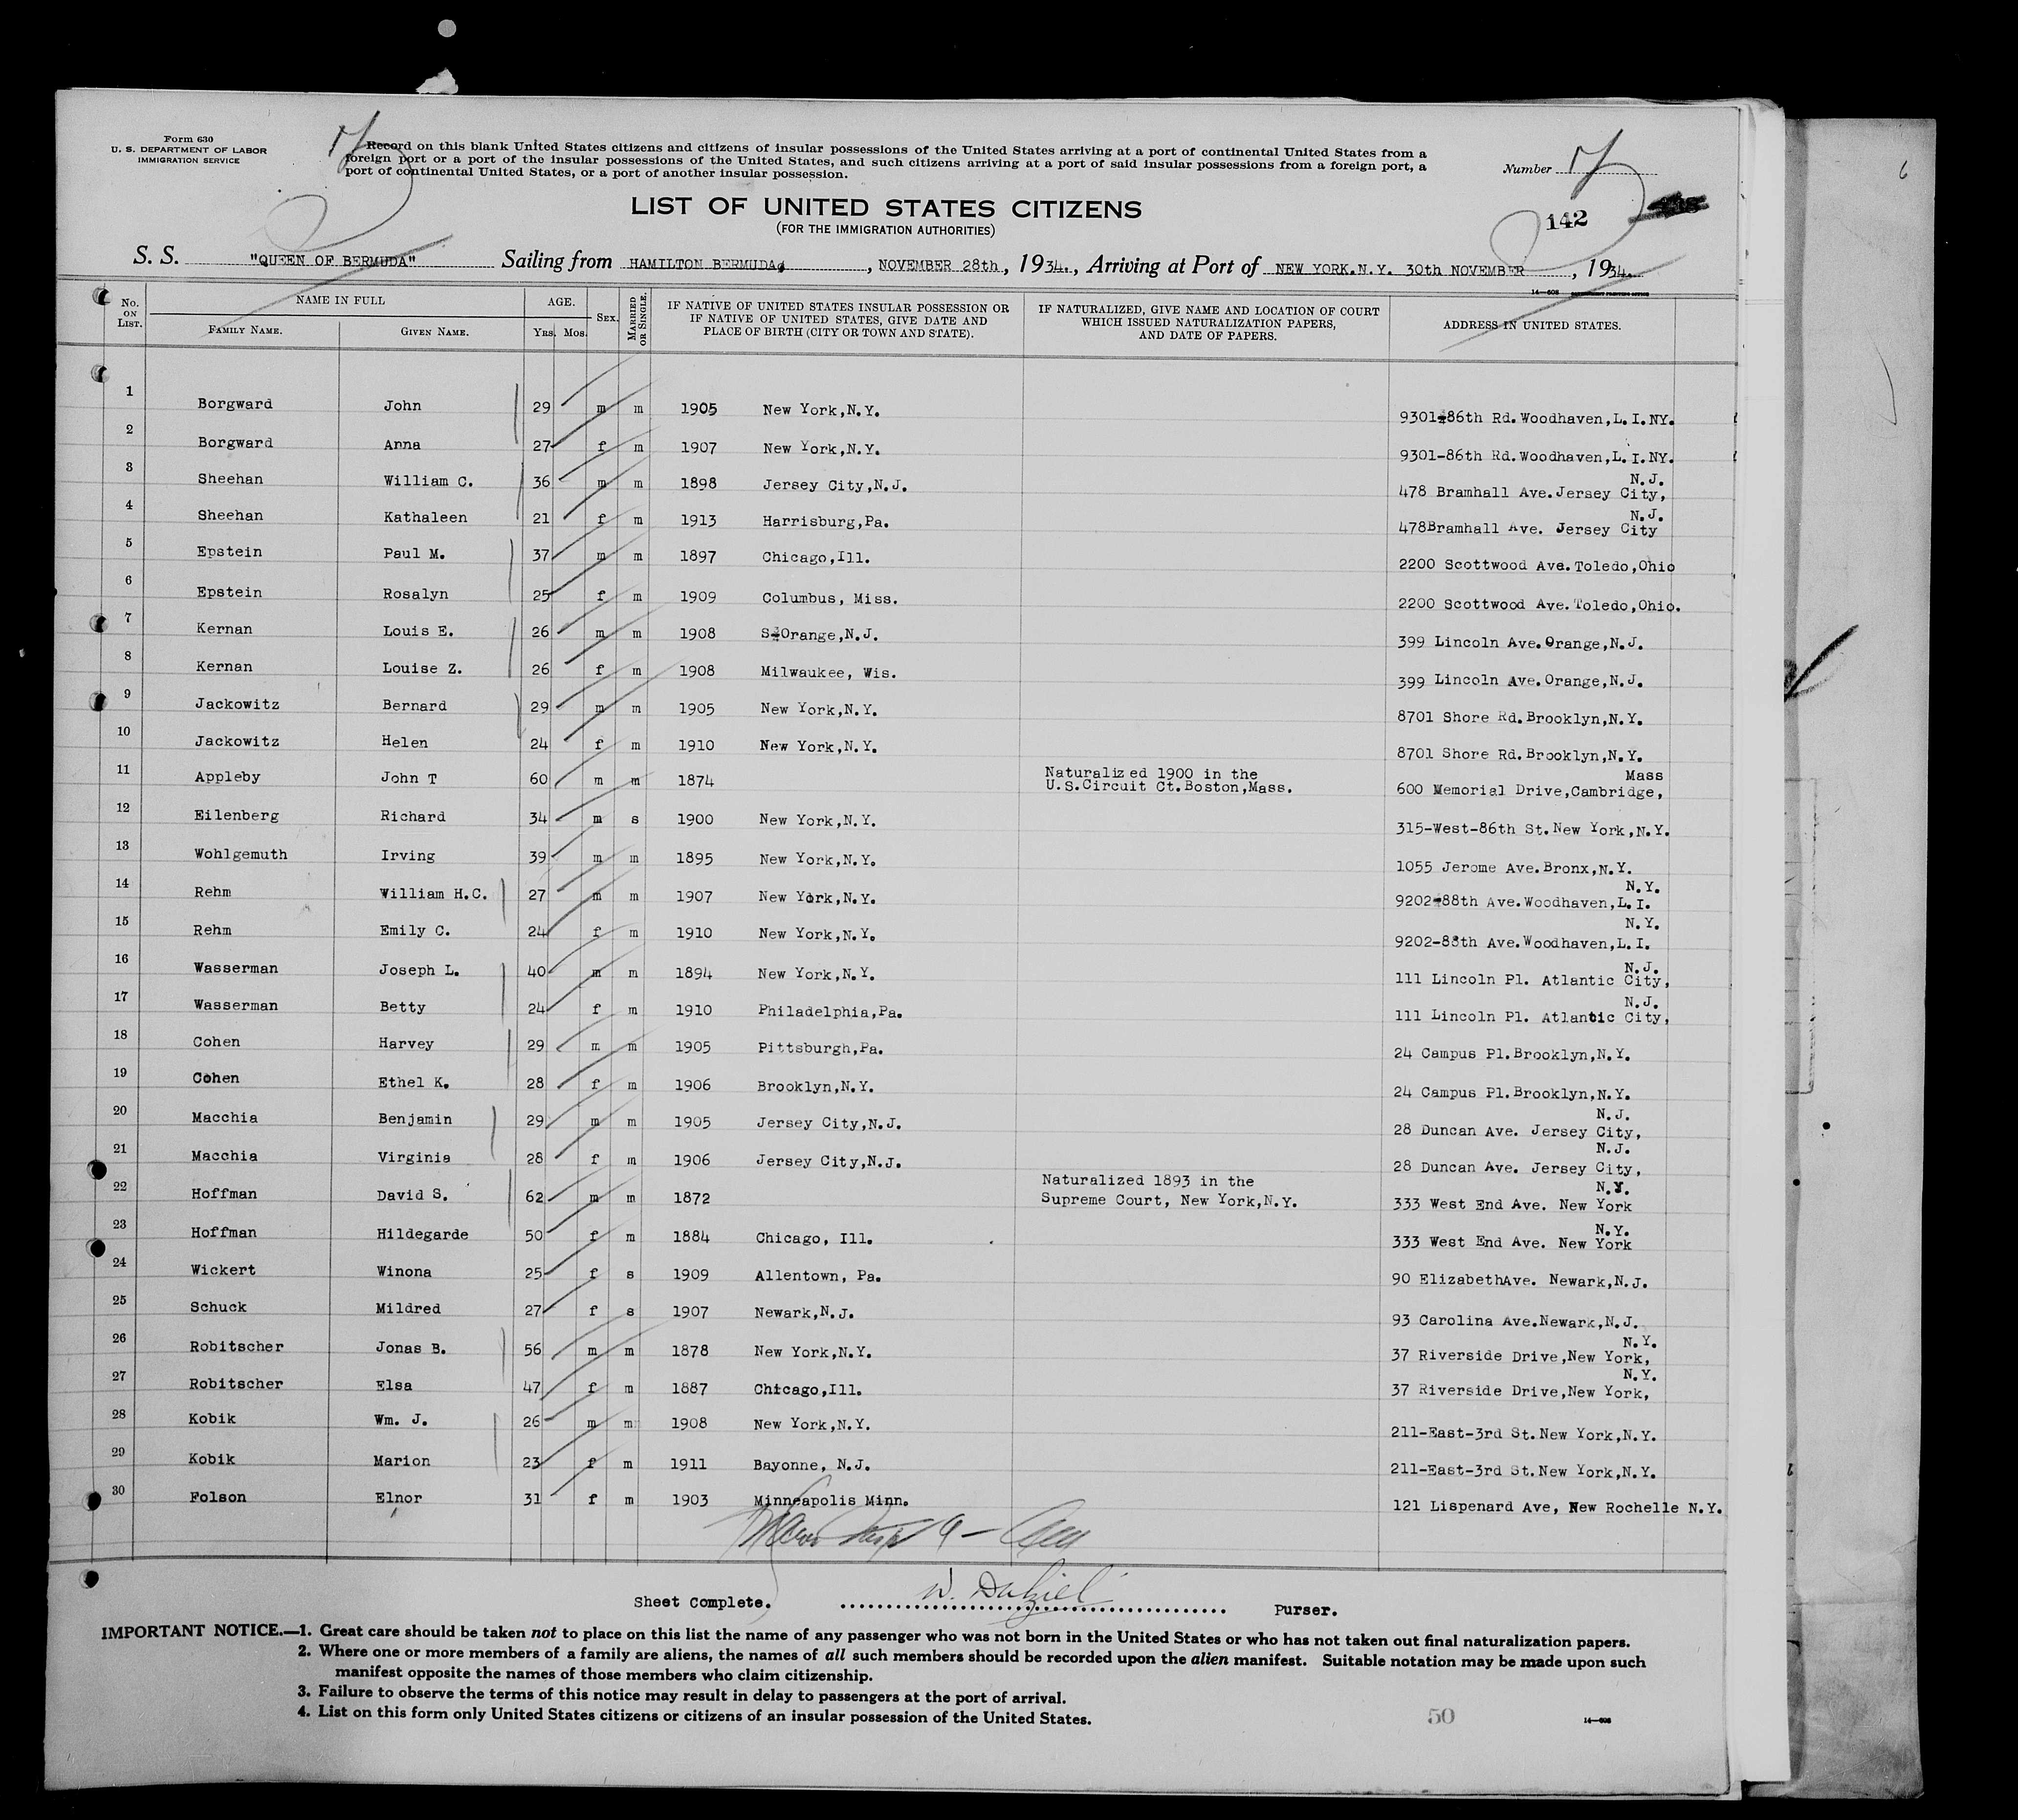 Form 630
U. S. DEPARTMENT OF LABOR
IMMIGRATION SERVICE
Record on this blank United States citizens and citizens of insular possessions of the United States arriving at a port of continental United States from a
foreign port or a port of the insular possessions of the United States, and such citizens arriving at a port of said insular possessions from a foreign port, a
port of continental United States, or a port of another insular possession.
Number
142
LIST OF UNITED STATES CITIZENS
(FOR THE IMMIGRATION AUTHORITIES)
S. S. "QUEEN OF BERMUDA" Sailing from HAMILTON BERMUDA, NOVEMBER 28th, 1934., Arriving at Port of NEW YORK.N.Y. 30th NOVEMBER, 1934.
14—608
No. ON LIST. NAME IN FULL FAMILY NAME. GIVEN NAME. AGE. Yrs. Mos. SEX. MARRIED OR SINGLE. IF NATIVE OF UNITED STATES INSULAR POSSESSION OR IF NATIVE OF UNITED STATES, GIVE DATE AND PLACE OF BIRTH (CITY OR TOWN AND STATE). IF NATURALIZED, GIVE NAME AND LOCATION OF COURT WHICH ISSUED NATURALIZATION PAPERS, AND DATE OF PAPERS. ADDRESS IN UNITED STATES.
1 Borgward John 29 m m 1905 New York,N.Y. 9301-86th Rd.Woodhaven,L.I.NY.
2 Borgward Anna 27 f m 1907 New York,N.Y. 9301-86th Rd.Woodhaven,L.I.NY.
3 Sheehan William C. 36 m m 1898 Jersey City,N.J. 478 Bramhall Ave.Jersey City, N.J.
4 Sheehan Kathaleen 21 f m 1913 Harrisburg,Pa. 478Bramhall Ave. Jersey City N.J.
5 Epstein Paul M. 37 m m 1897 Chicago,Ill. 2200 Scottwood Ave.Toledo,Ohio
6 Epstein Rosalyn 25 f m 1909 Columbus, Miss. 2200 Scottwood Ave.Toledo,Ohio.
7 Kernan Louis E. 26 m m 1908 S.Orange,N.J. 399 Lincoln Ave.Orange,N.J.
8 Kernan Louise Z. 26 f m 1908 Milwaukee, Wis. 399 Lincoln Ave.Orange,N.J.
9 Jackowitz Bernard 29 m m 1905 New York,N.Y. 8701 Shore Rd.Brooklyn,N.Y.
10 Jackowitz Helen 24 f m 1910 New York,N.Y. 8701 Shore Rd.Brooklyn,N.Y.
11 Appleby John T 60 m m 1874 Naturalized 1900 in the U.S.Circuit Ct.Boston,Mass. 600 Memorial Drive,Cambridge, Mass
12 Eilenberg Richard 34 m s 1900 New York,N.Y. 315-West-86th St.New York,N.Y.
13 Wohlgemuth Irving 39 m m 1895 New York,N.Y. 1055 Jerome Ave.Bronx,N.Y.
14 Rehm William H.C. 27 m m 1907 New York,N.Y. 9202-88th Ave.Woodhaven,L.I. N.Y.
15 Rehm Emily C. 24 f m 1910 New York,N.Y. 9202-88th Ave.Woodhaven,L.I. N.Y.
16 Wasserman Joseph L. 40 m m 1894 New York,N.Y. 111 Lincoln Pl. Atlantic City, N.J.
17 Wasserman Betty 24 f m 1910 Philadelphia,Pa. 111 Lincoln Pl. Atlantic City, N.J.
18 Cohen Harvey 29 m m 1905 Pittsburgh,Pa. 24 Campus Pl.Brooklyn,N.Y.
19 Cohen Ethel K. 28 f m 1906 Brooklyn,N.Y. 24 Campus Pl.Brooklyn,N.Y.
20 Macchia Benjamin 29 m m 1905 Jersey City,N.J. 28 Duncan Ave. Jersey City, N.J.
21 Macchia Virginia 28 f m 1906 Jersey City,N.J. 28 Duncan Ave. Jersey City, N.J.
22 Hoffman David S. 62 m m 1872 Naturalized 1893 in the Supreme Court, New York,N.Y. 333 West End Ave. New York N.Y.
23 Hoffman Hildegarde 50 f m 1884 Chicago, Ill. 333 West End Ave. New York N.Y.
24 Wickert Winona 25 f s 1909 Allentown, Pa. 90 ElizabethAve. Newark,N.J.
25 Schuck Mildred 27 f s 1907 Newark,N.J. 93 Carolina Ave.Newark,N.J.
26 Robitscher Jonas B. 56 m m 1878 New York,N.Y. 37 Riverside Drive,New York, N.Y.
27 Robitscher Elsa 47 f m 1887 Chicago,Ill. 37 Riverside Drive,New York, N.Y.
28 Kobik Wm. J. 26 m m 1908 New York,N.Y. 211-East-3rd St.New York,N.Y.
29 Kobik Marion 23 f m 1911 Bayonne, N.J. 211-East-3rd St.New York,N.Y.
30 Folson Elnor 31 f m 1903 Minneapolis Minn. 121 Lispenard Ave, New Rochelle N.Y.
Sheet Complete. W. Dalziel Purser.
IMPORTANT NOTICE.—1. Great care should be taken not to place on this list the name of any passenger who was not born in the United States or who has not taken out final naturalization papers.
2. Where one or more members of a family are aliens, the names of all such members should be recorded upon the alien manifest. Suitable notation may be made upon such
manifest opposite the names of those members who claim citizenship.
3. Failure to observe the terms of this notice may result in delay to passengers at the port of arrival.
4. List on this form only United States citizens or citizens of an insular possession of the United States.
50
14—608
6